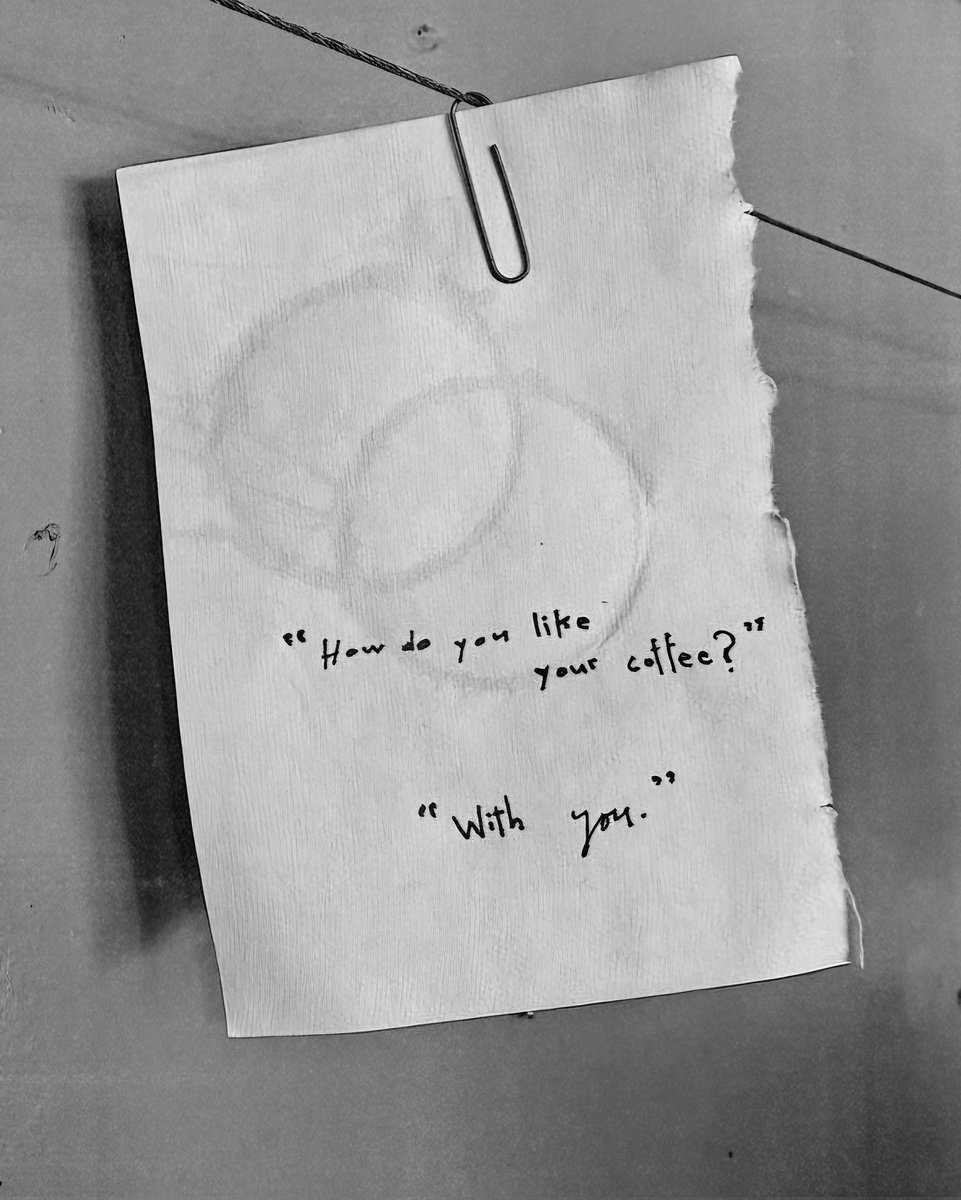 “How do you like
your coffee?”
“With you.”